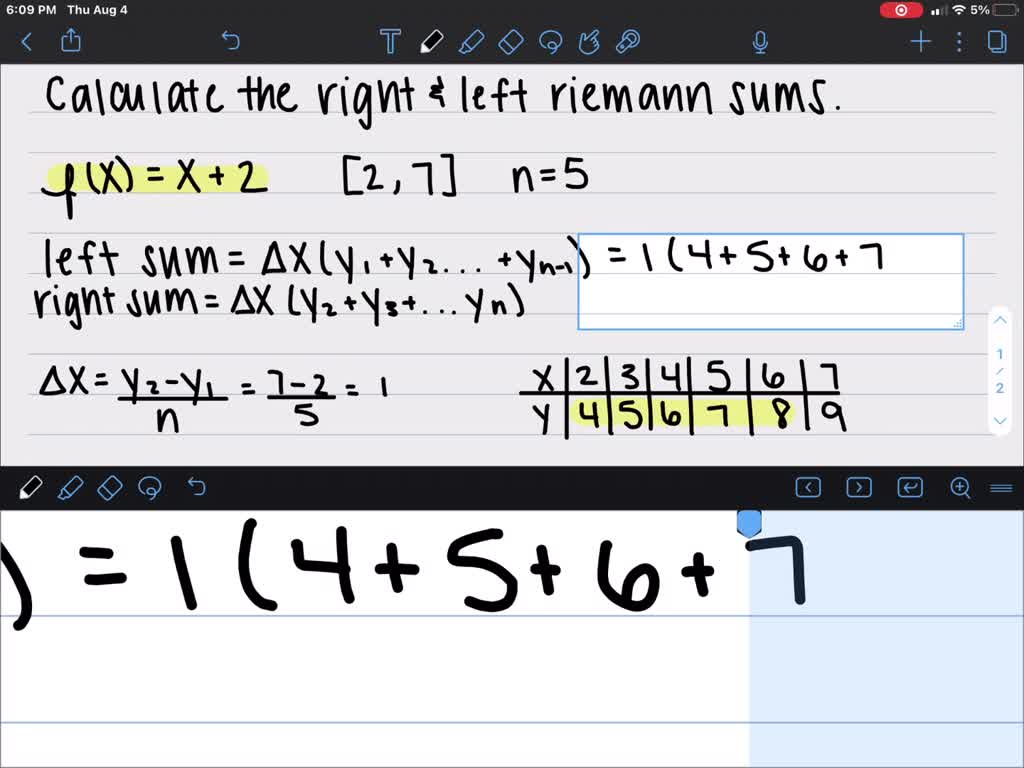 6:09 PM Thu Aug 4 5%
Calculate the right & left riemann sums.
f(x) = x + 2 [2, 7] n = 5
left sum = Δx (y₁ + y₂ ... + yₙ₋₁) = 1 (4 + 5 + 6 + 7
right sum = Δx (y₂ + y₃ + ... yₙ)
Δx = (y₂ - y₁)/n = (7 - 2)/5 = 1
x | 2 | 3 | 4 | 5 | 6 | 7
y | 4 | 5 | 6 | 7 | 8 | 9
1 / 2
) = 1 (4 + 5 + 6 + 7